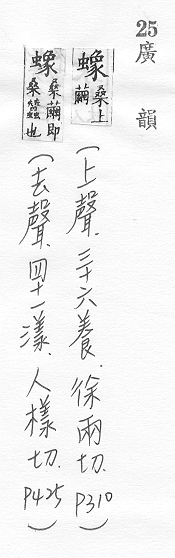 25廣韻
蟓桑上繭
(上聲.三十六養.徐兩切.P310)
蟓桑繭即桑蠶也
(去聲.四十一漾.人樣切.P425)